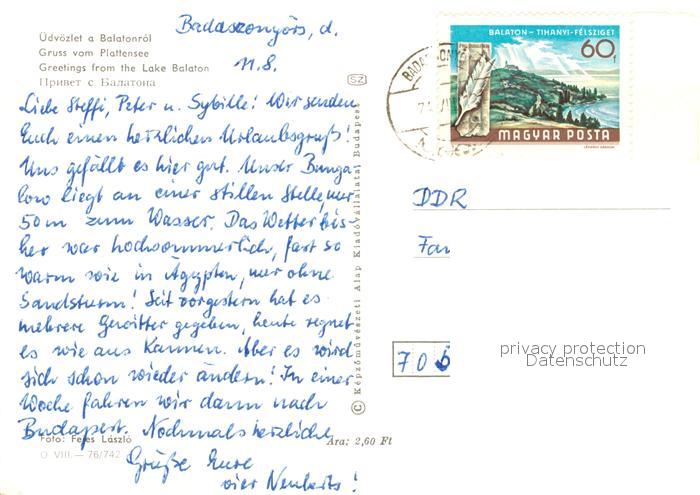 Üdvözlet a Balatonról
Gruss vom Plattensee
Greetings from the Lake Balaton
Привет с Балатона
Badaszonyörs, d.
11.8.
SZ
Liebe Steffi, Peter u. Sybille! Wir senden
Euch einen herzlichen Urlaubsgruß!
Uns gefällt es hier gut. Unser Bunga-
low liegt an einer stillen Stelle, nur
50m zum Wasser. Das Wetter bis-
her war hochsommerlich, fast so
warm wie in Ägypten, nur ohne
Sandsturm! Seit vorgestern hat es
mehrere Gewitter gegeben, heute regnet
es wie aus Kannen. Aber es wird
sich schon wieder ändern! In einer
Woche fahren wir dann nach
Budapest. Nochmals herzliche
Grüße Eure
vier Neuberts!
Foto: Fejes László
O VIII. — 76/742
Ára: 2,60 Ft
© Képzőművészeti Alap Kiadóvállalata, Budapest
BALATON - TIHANYI-FÉLSZIGET
60f
MAGYAR POSTA
DDR
Fam
705
privacy protection
Datenschutz